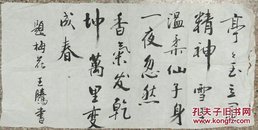 亭々玉立
精神雪
温柔仙子身
一夜忽然
香氣发乾
坤萬里变
成春
題梅花王腾書